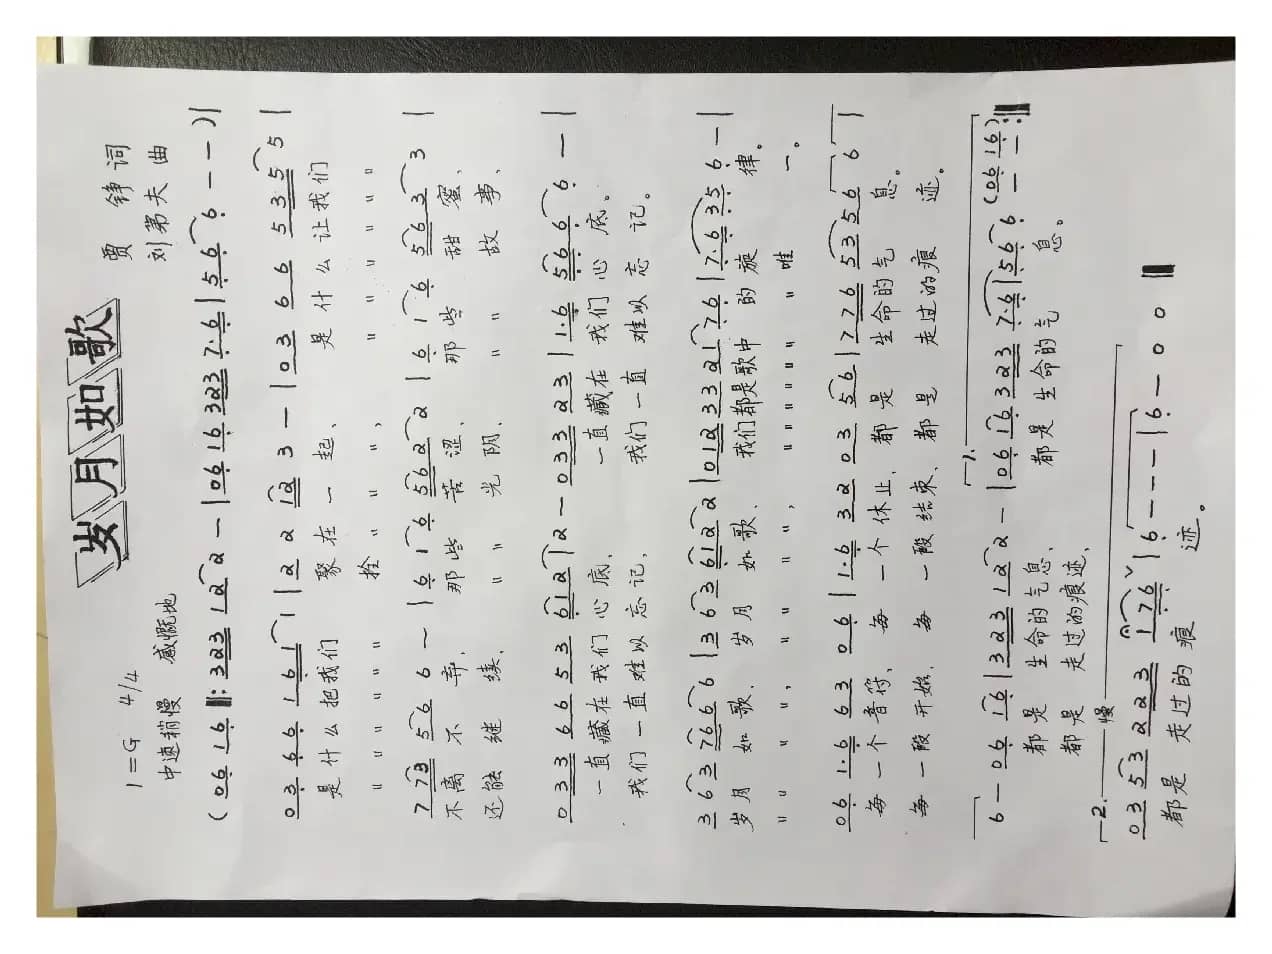 岁月如歌
1=G 4/4
贾 铮 词
中速稍慢 感慨地
刘 弟 夫 曲
(06 16 ‖: 323 12 2 — | 06 16 323 7·6 | 5 6 6 — — ) |
03 66 161 1 | 2 2 12 3 — | 03 6 6 535 5 |
是 什么 把我们 聚 在 一 起、 是 什 么 让我们
〃 〃 〃 〃 〃 〃 拴 〃 〃 〃, 〃 〃 〃 〃 〃 〃
7 73 56 6 — | 6 1 6 562 2 | 6 1 6 563 3 |
不 离 不 弃, 那 些 苦 涩、 那 些 甜 蜜、
还 能 继 续、 〃 〃 光 阴、 〃 〃 故 事、
033 66 53 612 | 2 — 033 223 | 1·6 566 6 — |
一直 藏在 我们 心 底, 一直 藏在 我们 心 底。
我们 一直 难以 忘 记, 我们 一直 难以 忘 记。
3 6 3 766 6 | 3 6 3 612 2 | 012 33 21 76 | 7·6 35 6 — |
岁 月 如 歌、 岁 月 如 歌、 我们都是歌中 的 旋 律。
〃 〃 〃 〃, 〃 〃 〃 〃, 〃 〃 〃 〃 〃 〃 〃 唯 一。
06 1·6 63 06 | 1·6 32 03 56 | 776 53 56 6 |
每 一个 音符、 每 一个 休止、 都 是 生命的 气 息。
每 一段 开始、 每 一段 结束、 都 是 走过的 痕 迹。
6 — 06 16 | 323 12 2 — | 06 16 323 7·6 | 566 6 — — (06 16) :‖
都 是 生命的 气息、 都 是 生命的 气 息。
都 是 走过的 痕迹、
2. 慢
03 53 2223 176 | 6 — — — | 6 — 0 0 ‖
都是 走过的 痕 迹。